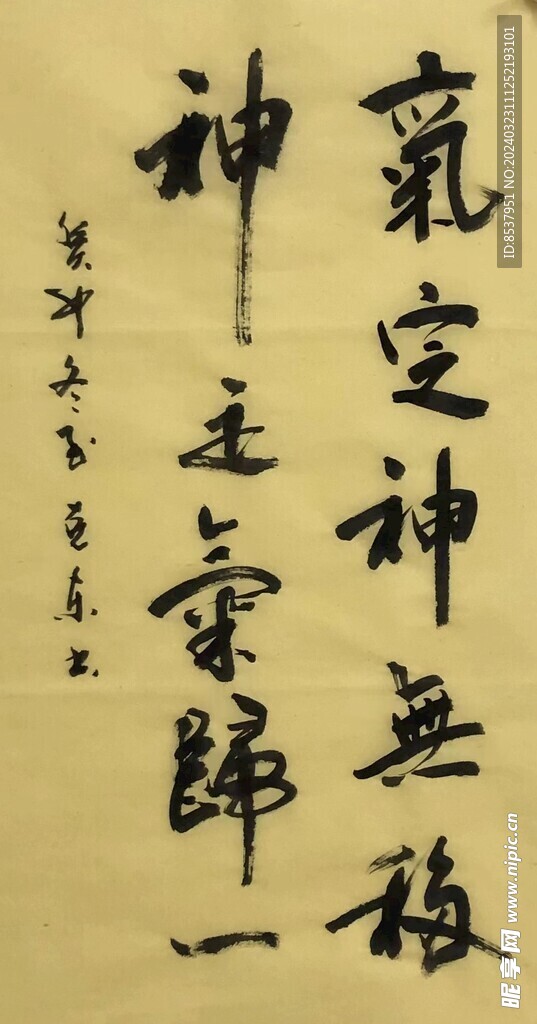 氣定神無移
神正氣歸一
癸卯冬至克東书
ID:8537951 NO:20240323111252193101
昵享网 www.nipic.cn